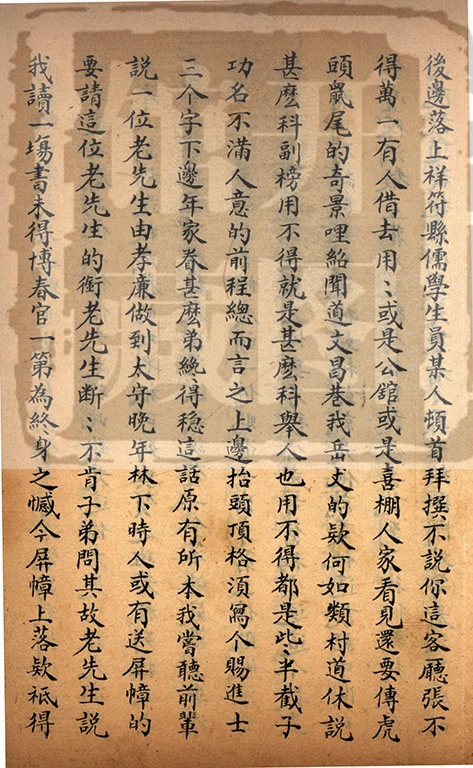 後邊落上祥符縣儒學生員某人頓首拜撰不說你這客廳張不
得萬一有人借去用〻或是公舘或是喜棚人家看見還要傳虎
頭鼠尾的奇景哩紹聞道文昌巷我岳丈的欵何如類村道休說
甚麽科副榜用不得就是甚麽科舉人也用不得都是此〻半截子
功名不滿人意的前程總而言之上邊抬頭頂格須寫个賜進士
三个字下邊年家眷甚麽弟纔得稳這話原有所本我嘗聽前輩
說一位老先生由孝廉做到太守晚年林下時人或有送屏幛的
要請這位老先生的銜老先生断〻不肯子弟問其故老先生說
我讀一塲書未得博春官一第為終身之憾今屏幛上落欵祇得